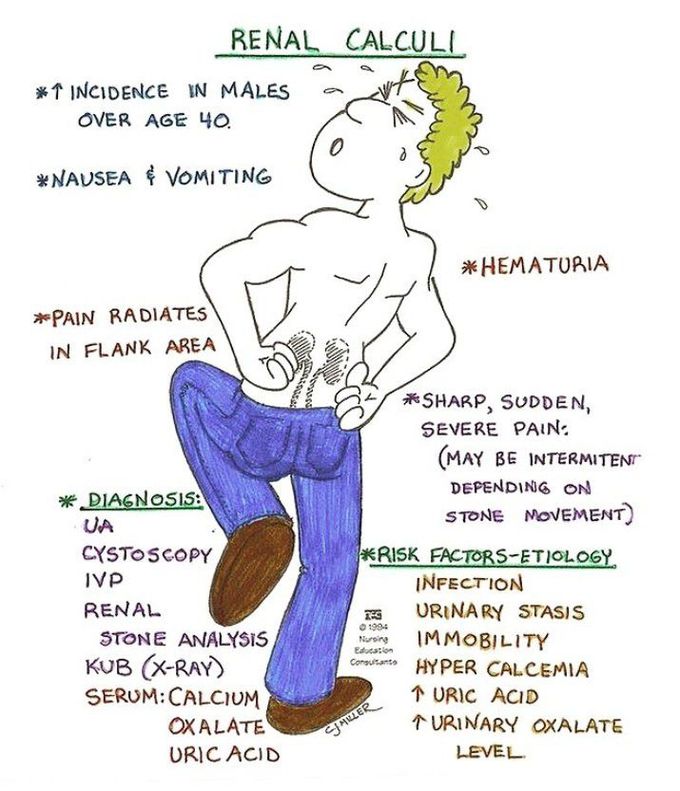 RENAL CALCULI
*↑ INCIDENCE IN MALES
OVER AGE 40.
*NAUSEA & VOMITING
*HEMATURIA
*PAIN RADIATES
IN FLANK AREA
*SHARP, SUDDEN,
SEVERE PAIN:
(MAY BE INTERMITENT
DEPENDING ON
STONE MOVEMENT)
* DIAGNOSIS:
UA
CYSTOSCOPY
IVP
RENAL
STONE ANALYSIS
KUB (X-RAY)
SERUM: CALCIUM
OXALATE
URIC ACID
*RISK FACTORS-ETIOLOGY
INFECTION
URINARY STASIS
IMMOBILITY
HYPER CALCEMIA
↑ URIC ACID
↑ URINARY OXALATE
LEVEL.
© 1994
Nursing
Education
Consultants
CJ MILLER